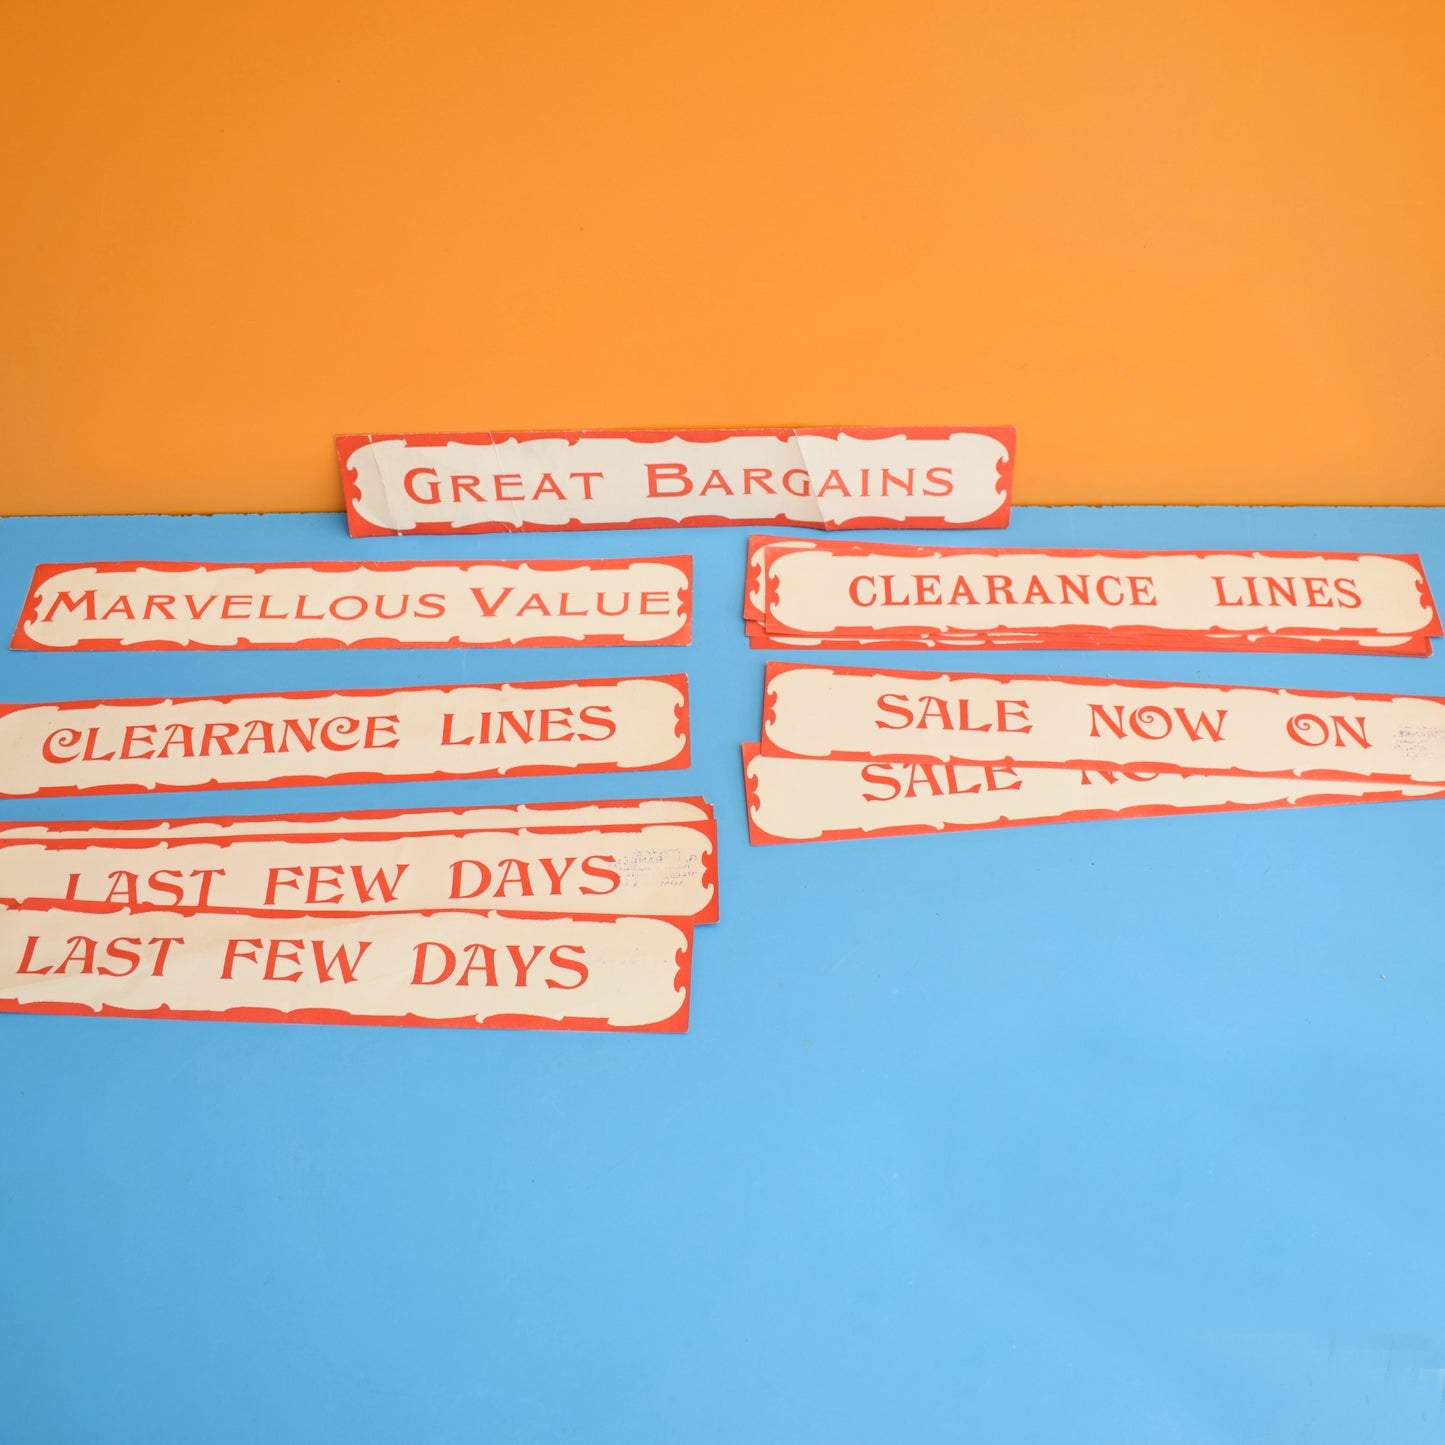 GREAT BARGAINS
MARVELLOUS VALUE
CLEARANCE LINES
CLEARANCE LINES
SALE NOW ON
SALE
LAST FEW DAYS
LAST FEW DAYS